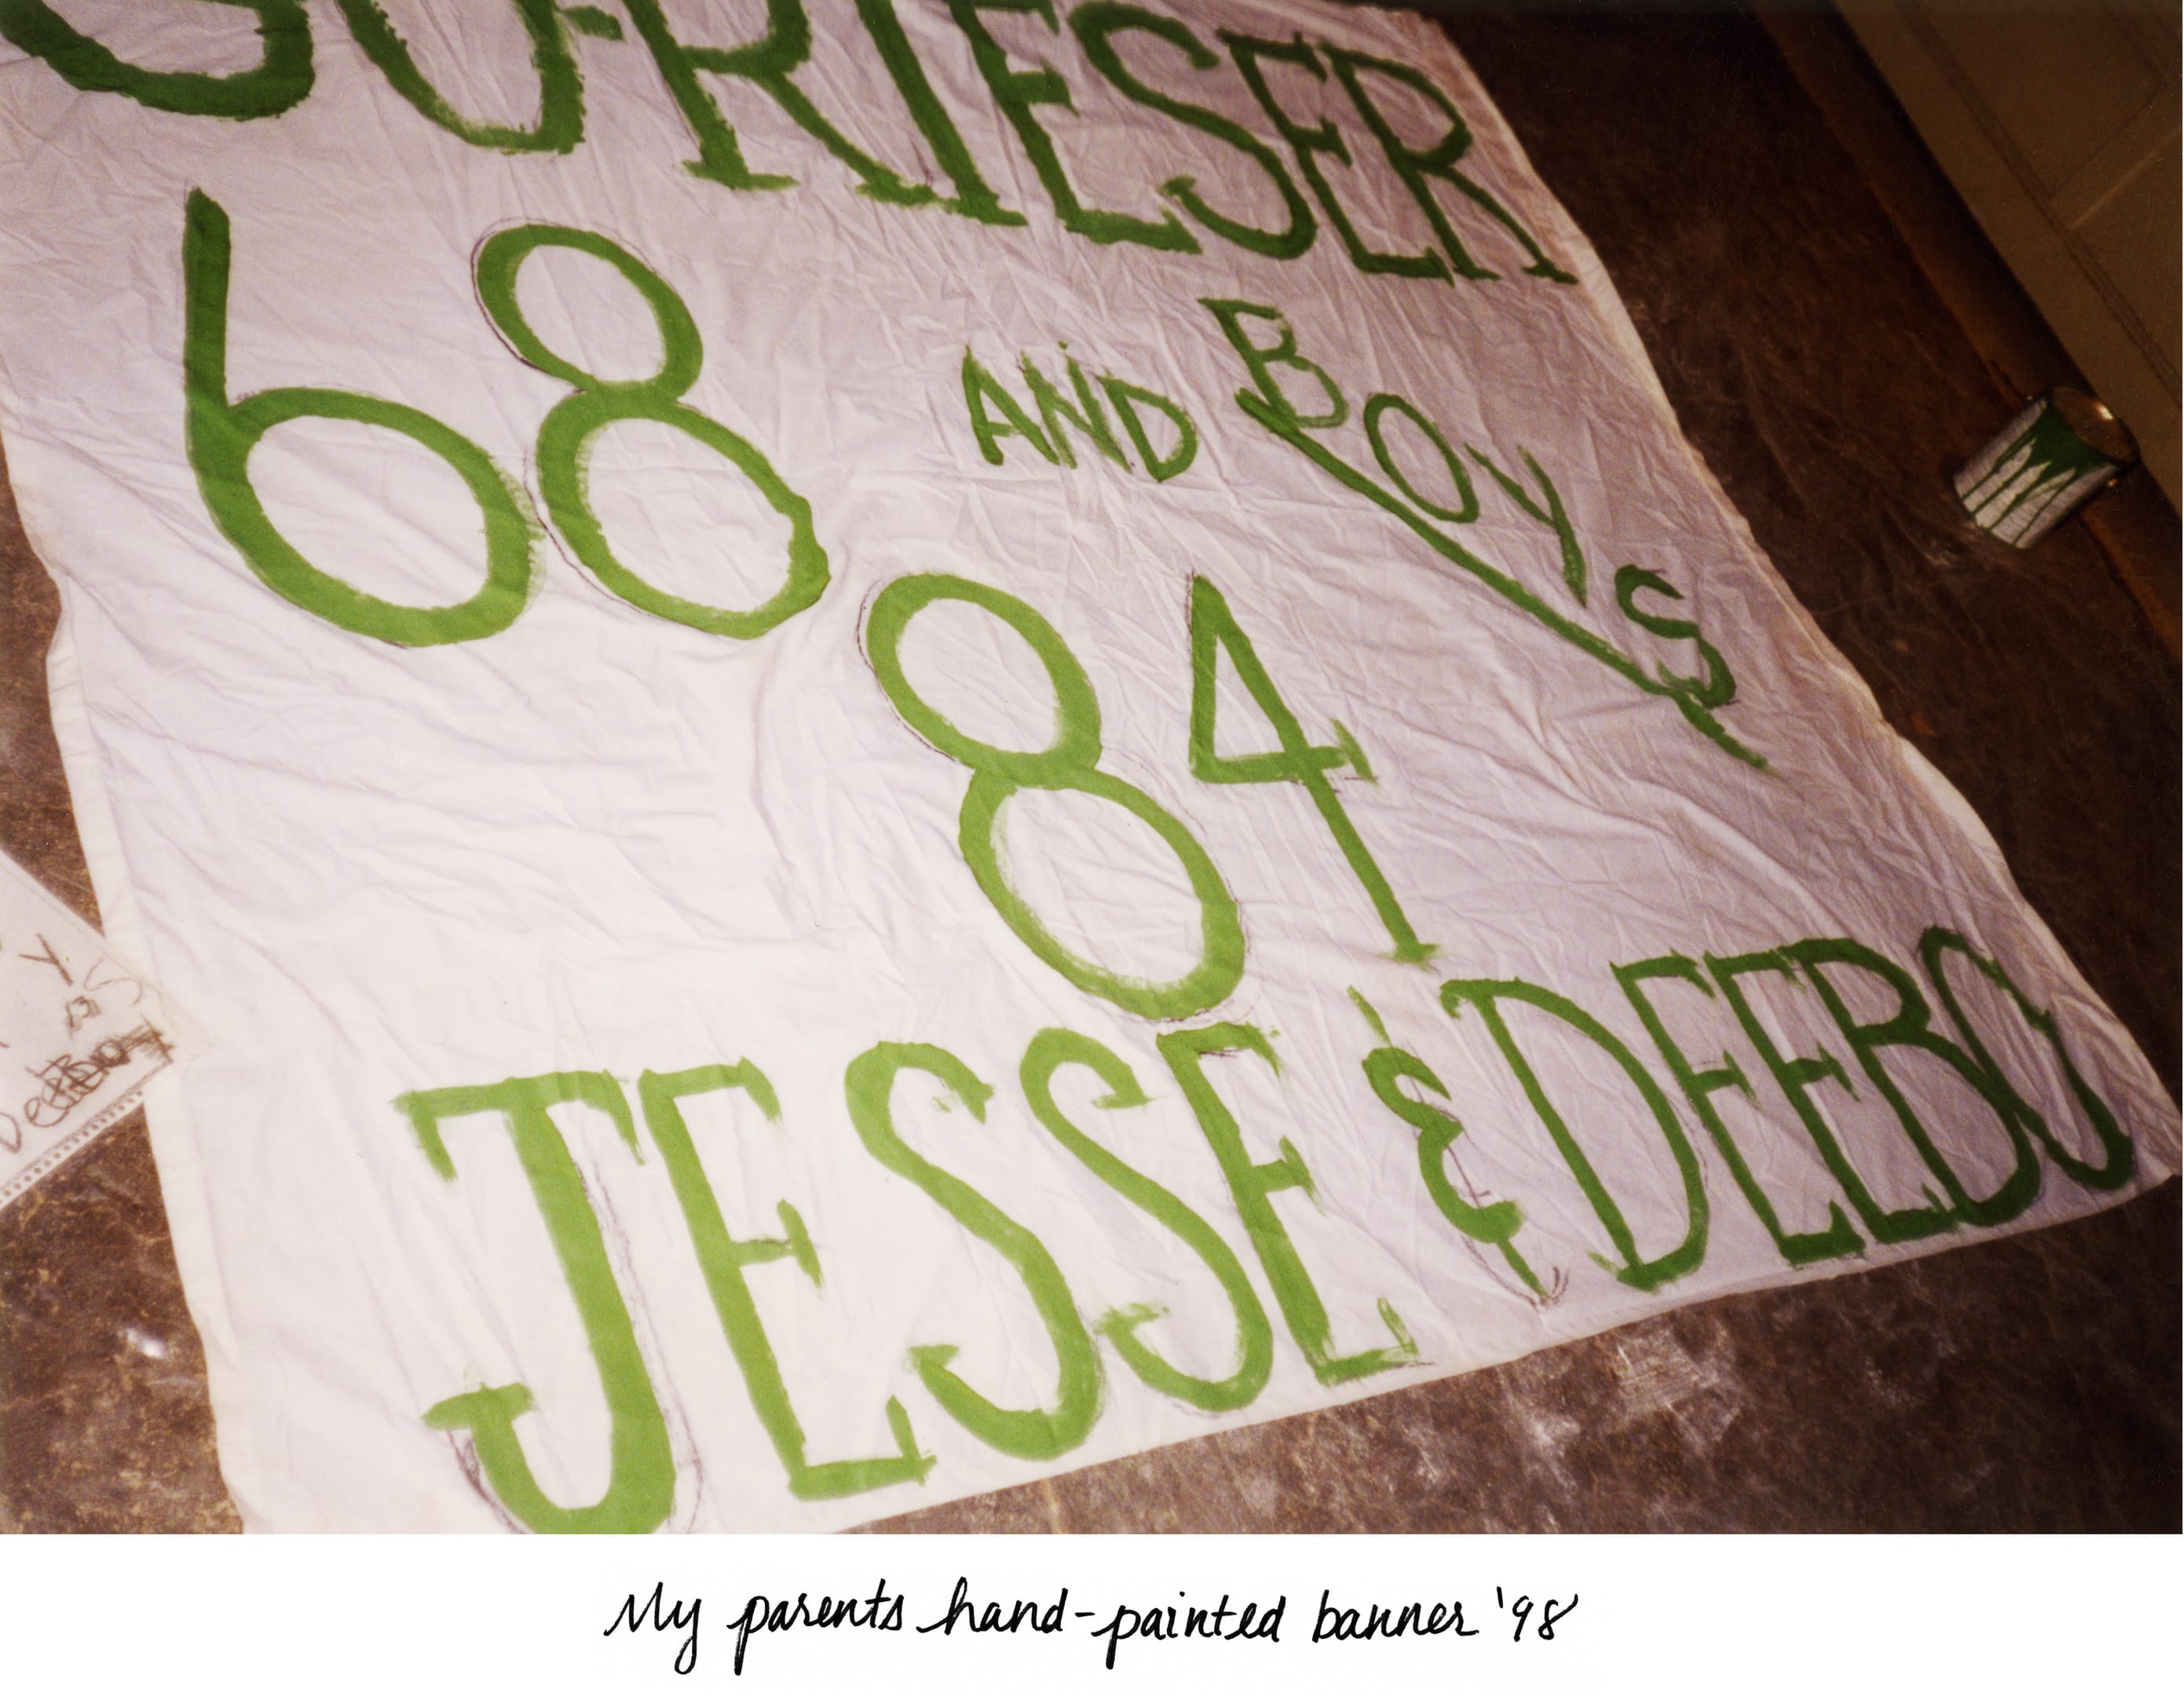 RIESER
68 AND BOYS
84
JESSE & DEEBO
My parents hand-painted banner '98